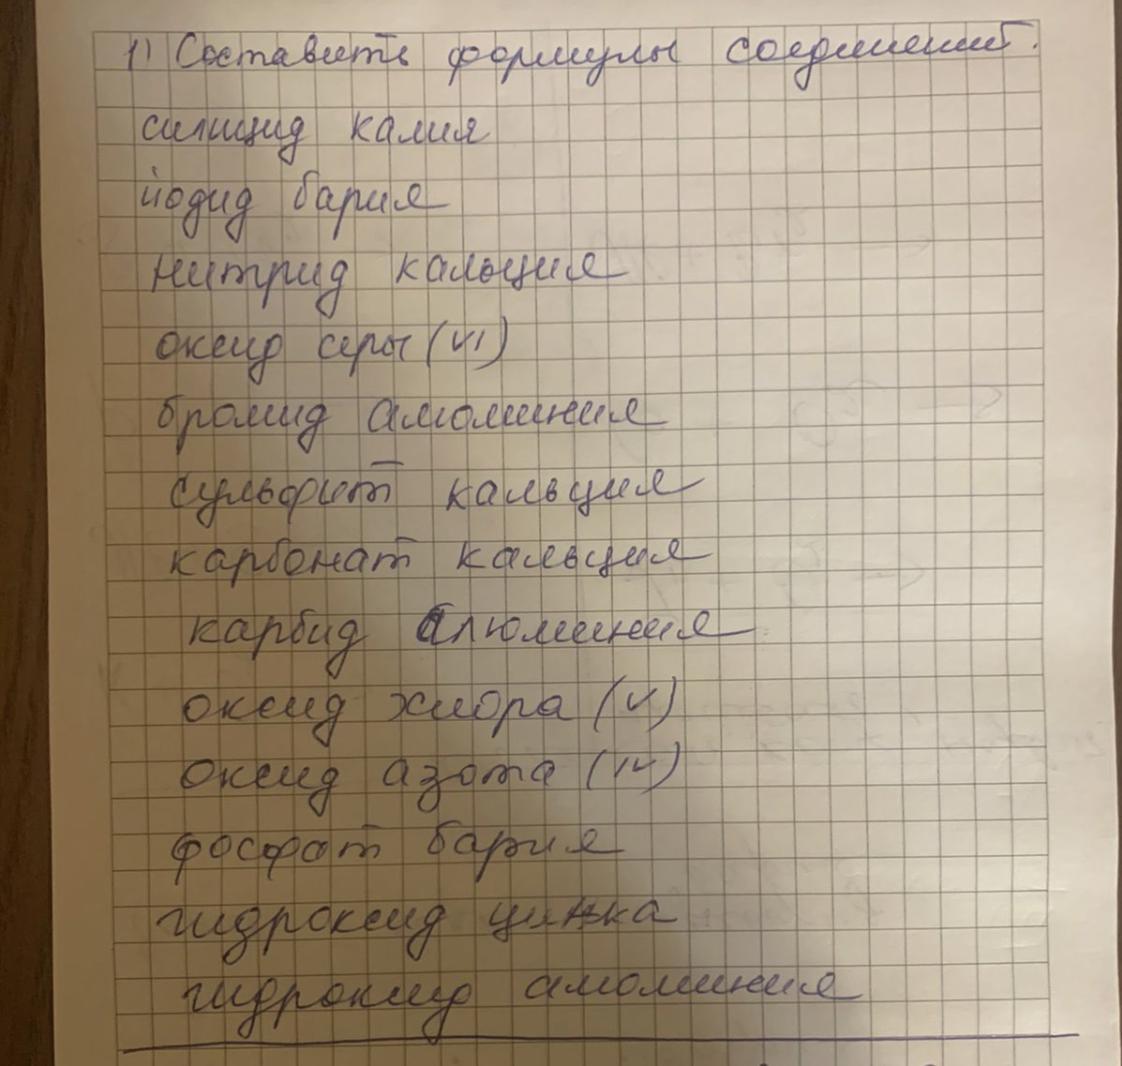 1) Составить формулы соединений.
силицид калия
йодид бария
нитрид кальция
оксид серы (VI)
бромид алюминия
сульфит кальция
карбонат кальция
карбид алюминия
оксид хлора (V)
оксид азота (IV)
фосфат бария
гидроксид цинка
гидроксид алюминия